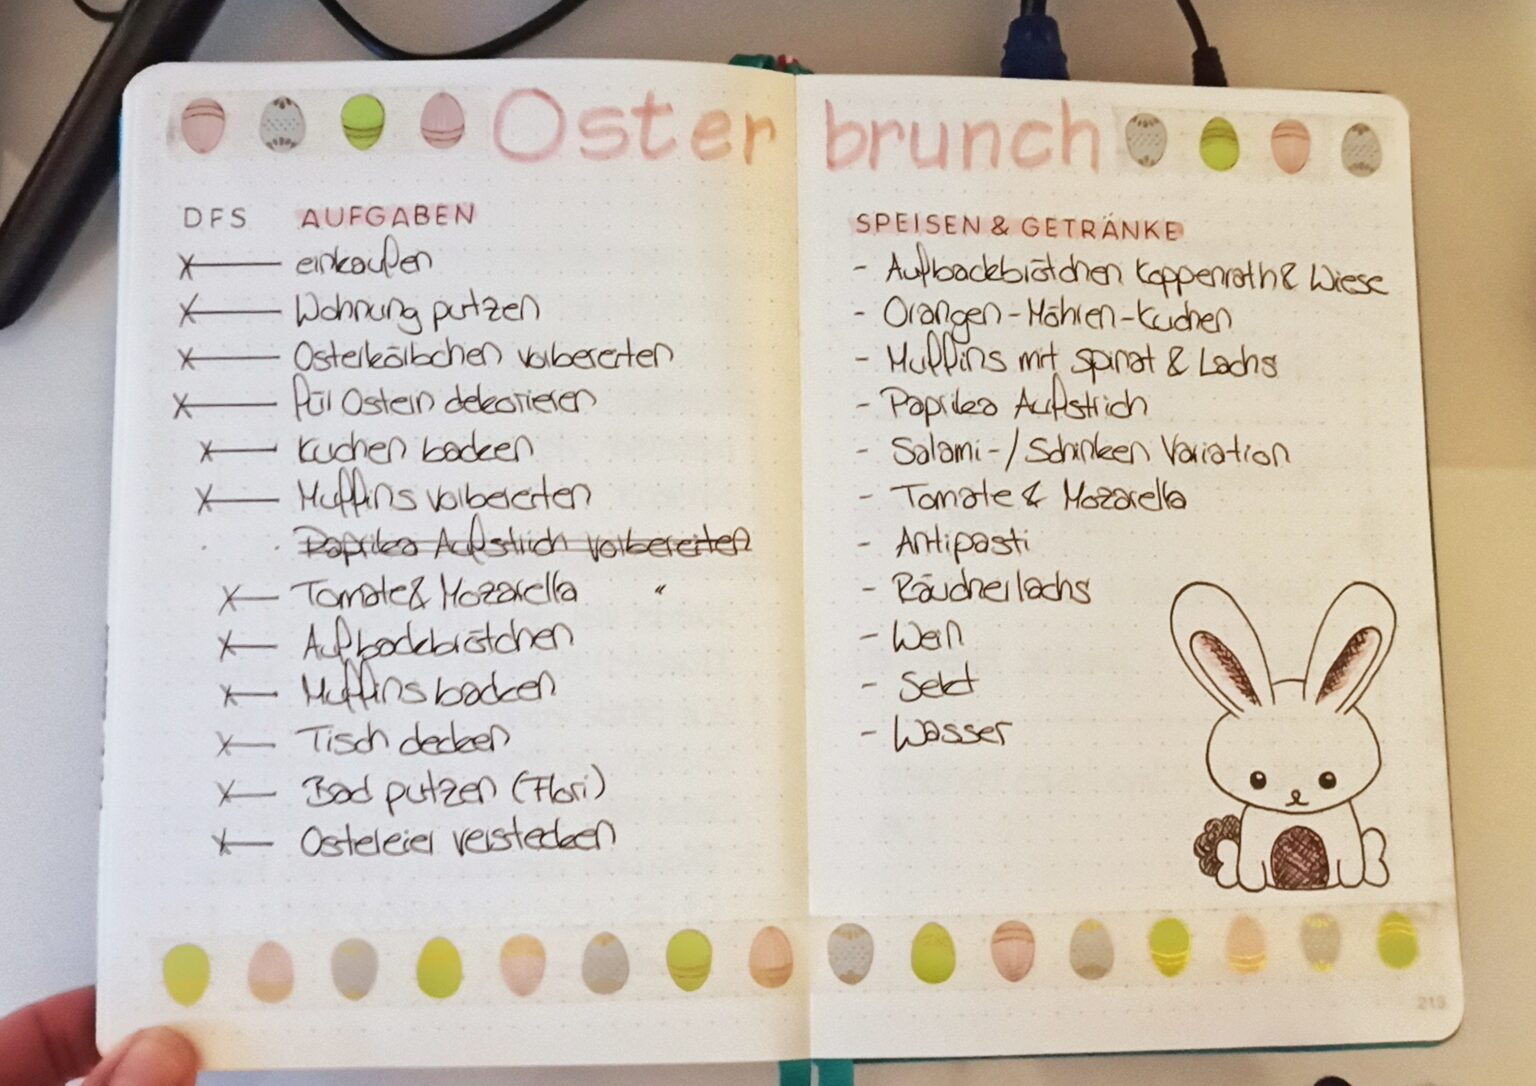 Osterbrunch
DFS AUFGABEN
einkaufen
Wohnung putzen
Osterkörbchen vorbereiten
für Ostern dekorieren
Kuchen backen
Muffins vorbereiten
Paprika Aufstrich vorbereiten
Tomate & Mozarella "
Aufbackbrötchen
Muffins backen
Tisch decken
Bad putzen (Flori)
Ostereier verstecken
SPEISEN & GETRÄNKE
- Aufbackbrötchen Koppenrath & Wiese
- Orangen-Möhren-Kuchen
- Muffins mit Spinat & Lachs
- Paprika Aufstrich
- Salami-/Schinken Variation
- Tomate & Mozarella
- Antipasti
- Räucherlachs
- Wein
- Sekt
- Wasser
213